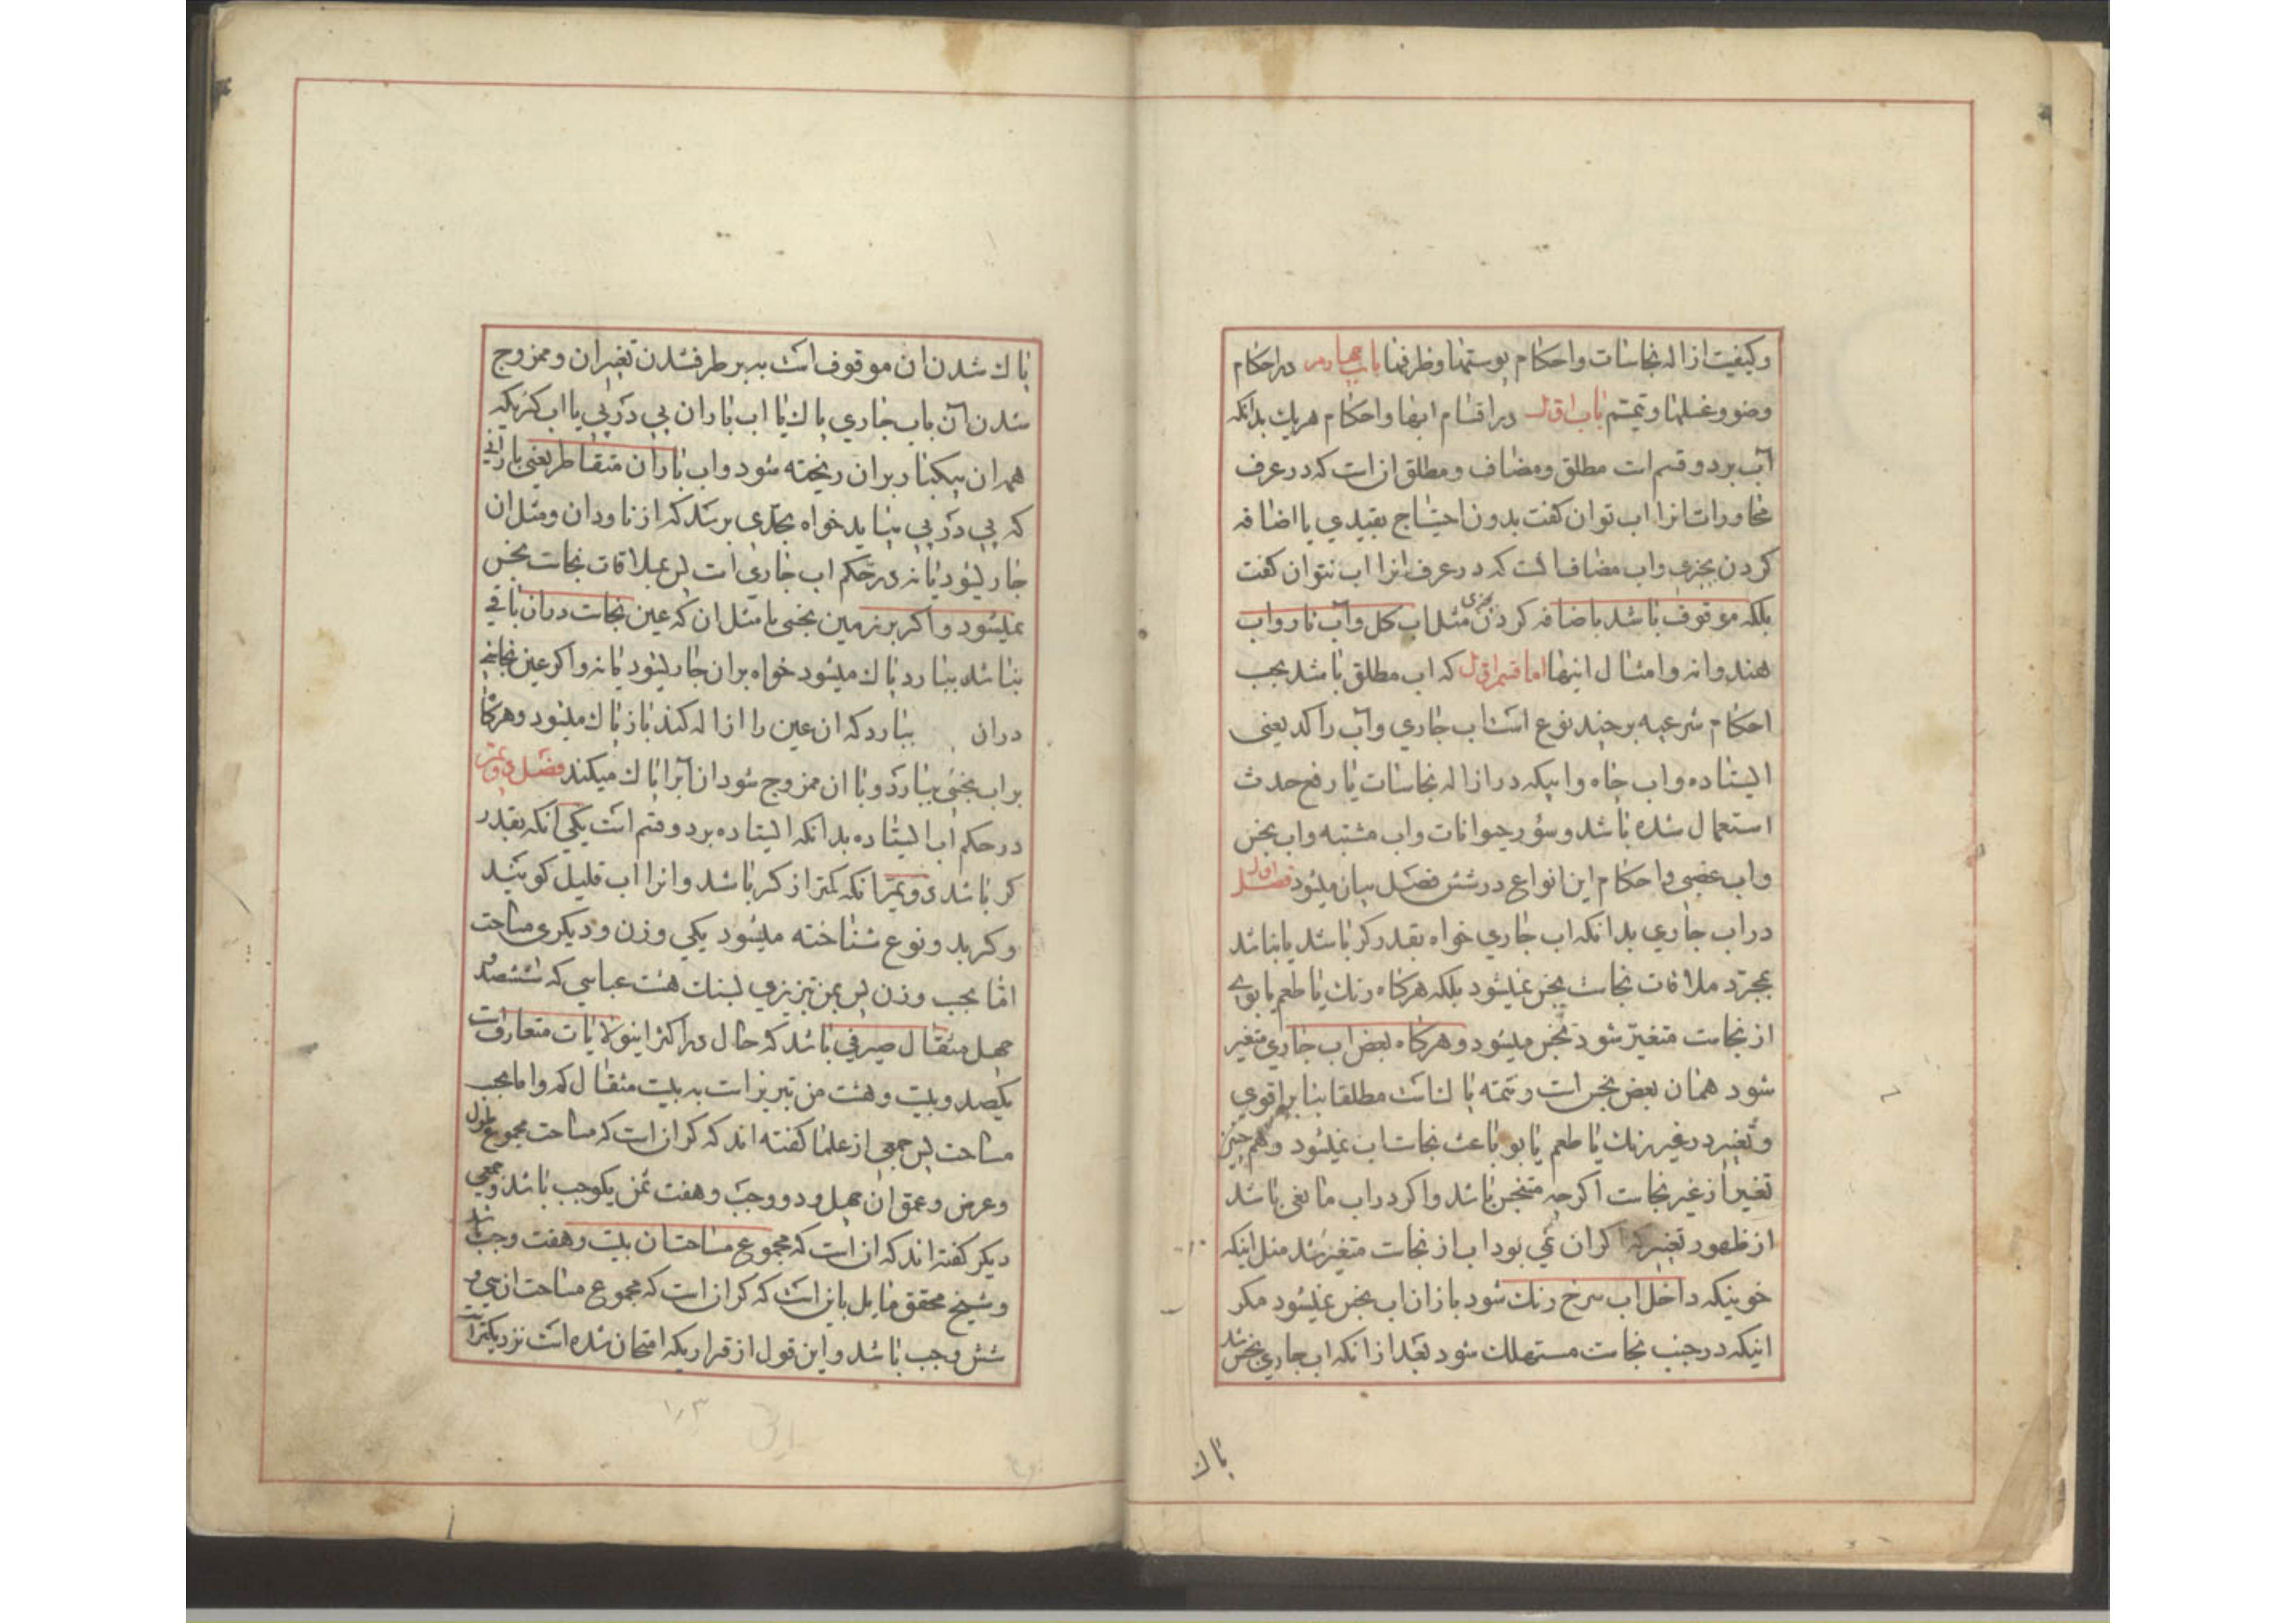 وکیفیت ازاله نجاسات واحکام پوستها وظرفها باب چهارم در احکام
وضو وغسلها وتیمم باب اول در اقسام ابها واحکام هریك بدانکه
آب بر دو قسم است مطلق ومضاف ومطلق ان است که در عرف
محاورات انرا اب توان کفت بدون احتیاج بقیدي یا اضافه
کردن بچیزی واب مضاف انست که در عرف انرا اب نتوان کفت
بلکه موقوف باشد باضافه کردن بچیزی مثل اب کل واب نار واب
هندوانه وامثال اینها اما قسم اول که اب مطلق باشد بحسب
احکام شرعیه بر چند نوع است اب جاري وآب راکد یعنی
ایستاده واب چاه وابیکه در ازاله نجاسات یا رفع حدث
استعمال شده باشد وسؤر حیوانات واب مشتبه واب نجس
واب غصبی واحکام این انواع در شش فصل بیان میشود فصل اول
در اب جاري بدانکه اب جاري خواه بقدر کر باشد یا نباشد
بمجرد ملاقات نجاست نجس نمیشود بلکه هرکاه رنك یا طعم یا بوی
از نجاست متغیر شود نجس میشود وهرکاه بعض اب جاري متغیر
شود همان بعض نجس است وتتمه پاك است مطلقا بنا بر اقوی
وتغییر در غیر رنك یا طعم یا بو باعث نجاست اب نمیشود وهمچنین
تغییر از غیر نجاست اکرچه متنجس باشد واکر در اب مانعی باشد
از ظهور تغییر که اکر ان نمی بود اب از نجاست متغیر میشد مثل اینکه
خونیکه داخل اب سرخ رنك شود باز ان اب نجس نمیشود مکر
اینکه در جنب نجاست مستهلك شود بعد از انکه اب جاري نجس شد
پاك
پاك شدن ان موقوف است به بر طرف شدن تغییر ان وممزوج
شدن آن باب جاري پاك یا اب باران پی در پی یا اب کریکه
همه ان بیکبار بر ان ریخته شود واب باران متقاطر یعنی بارانی
که پی در پی بباید خواه بحدي برسد که از ناودان ومثل ان
جار یشود یا نه در حکم اب جاري است پس بملاقات نجاست نجس
نمیشود واکر بر زمین نجس یا مثل ان که عین نجاست در ان باقی
نباشد ببارد پاك میشود خواه بر ان جار یشود یا نه واکر عین نجاستی
دران ببارد که ان عین را ازاله کند باز پاك میشود وهرکاه
بر اب نجس ببارد وبا ان ممزوج شود ان آبرا پاك میکند فصل دویم
در حکم آب ایستاده بدانکه ایستاده بر دو قسم است یکی انکه بقدر
کر باشد دویم انکه کمتر از کر باشد وانرا اب قلیل کویند
وکر بدو نوع شناخته میشود یکي وزن ودیکری مساحت
امّا بحسب وزن پس بمن تبریزي بسنك هشت عباسي که ششصد و
چهل مثقال صیرفي باشد که حال در اکثر اینولایات متعارف است
یکصد وبیست وهشت من تبریز است به بیست مثقال کم واما بحسب
مساحت پس جمعی از علما کفته اند که کر ان است که مساحت مجموع طول
وعرض وعمق ان چهل ودو وجب وهفت ثمن یکوجب باشد وجمعی
دیکر کفته اند که ان است که مجموع مساحت ان بیست وهفت وجب باشد
وشیخ محقق مایل باین است که کر ان است که مجموع مساحت ان سی و
شش وجب باشد واین قول از قراریکه امتحان شده است نزدیکتر است